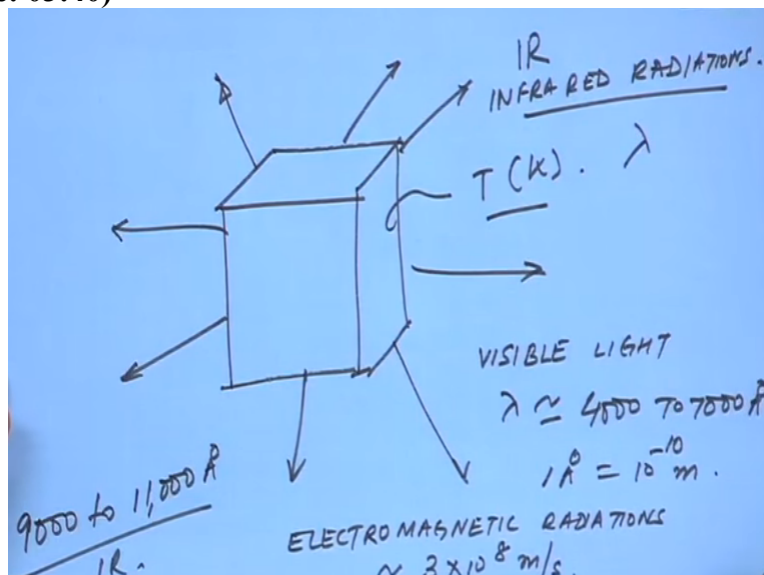 IR
INFRARED RADIATIONS.
T (K). λ
VISIBLE LIGHT
λ ≃ 4000 TO 7000 Å
1 Å = 10⁻¹⁰ m.
9000 to 11,000 Å
IR.
ELECTROMAGNETIC RADIATIONS
≃ 3×10⁸ m/s.